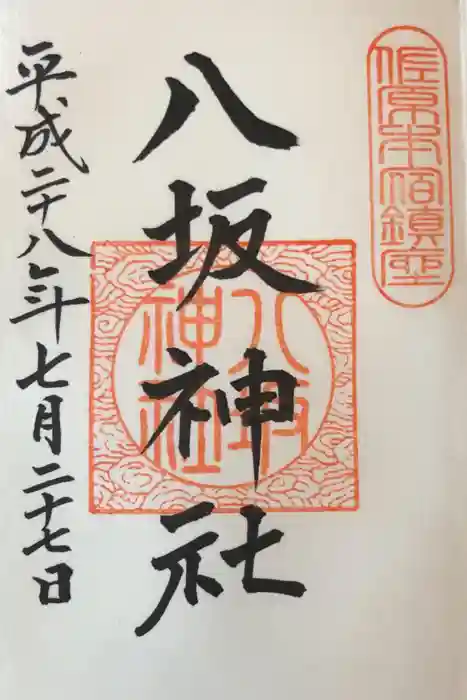 佐原本宿鎮座
八坂神社
八坂神社
平成二十八年七月二十七日